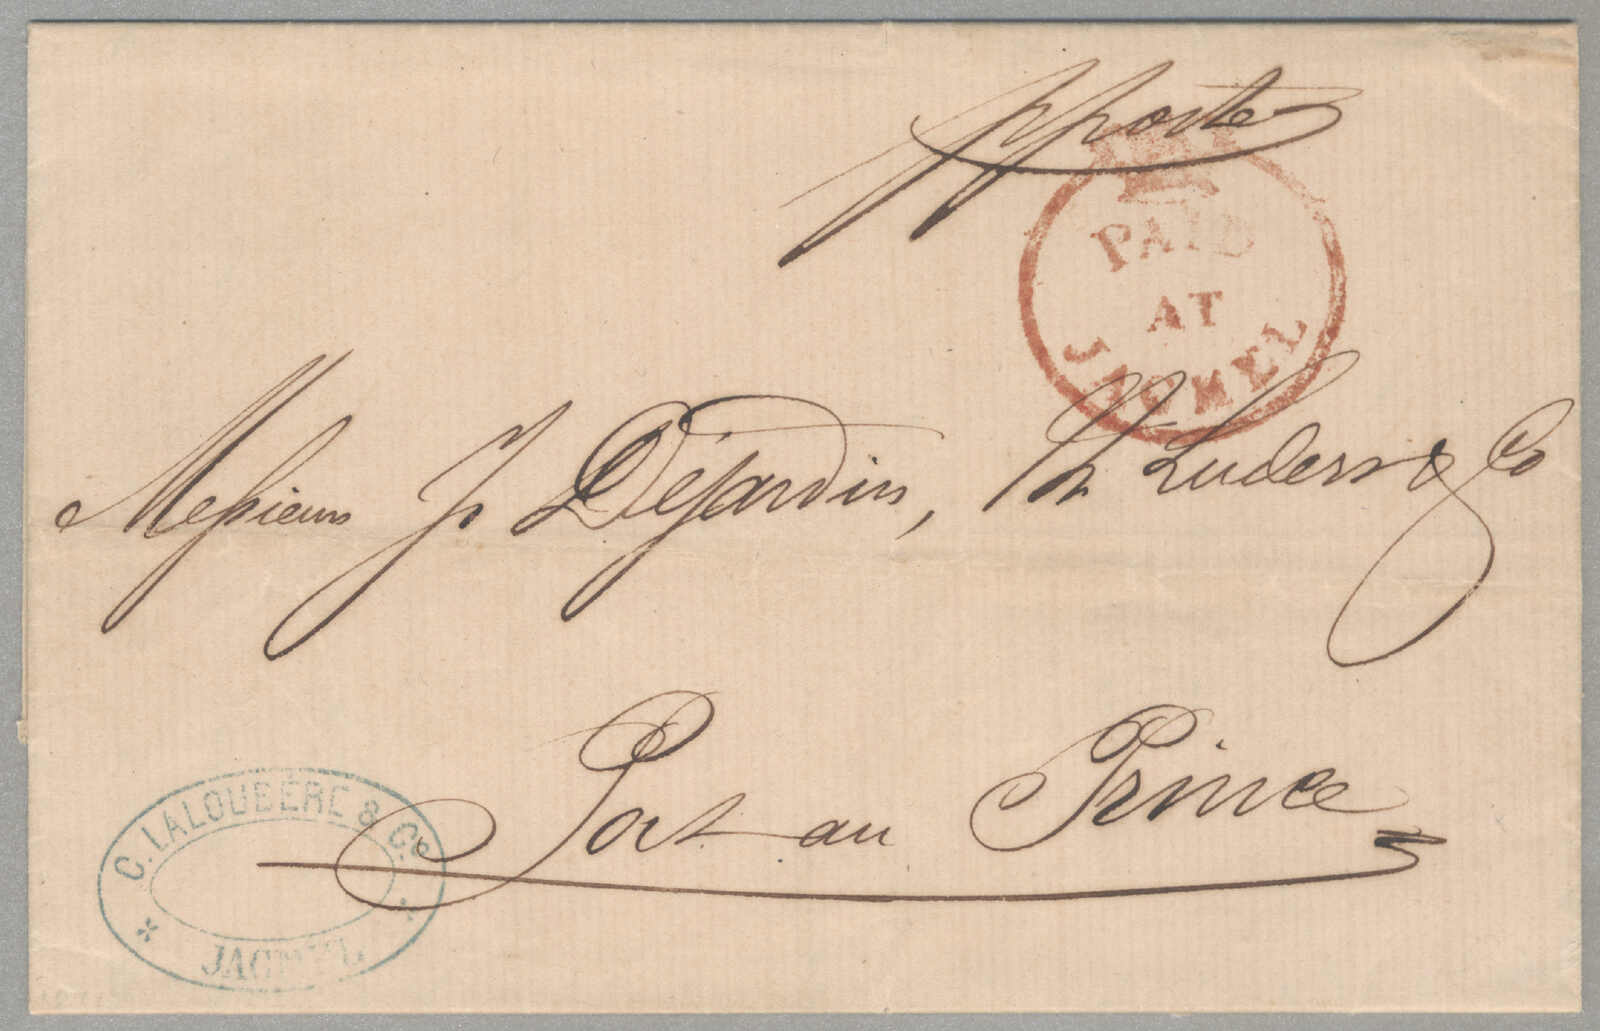 pposte
PAID
AT
JACMEL
Messieurs J. Dejardin, Th Luders & Co
Port au Prince
C. LALOUBÈRE & Co.
JACMEL